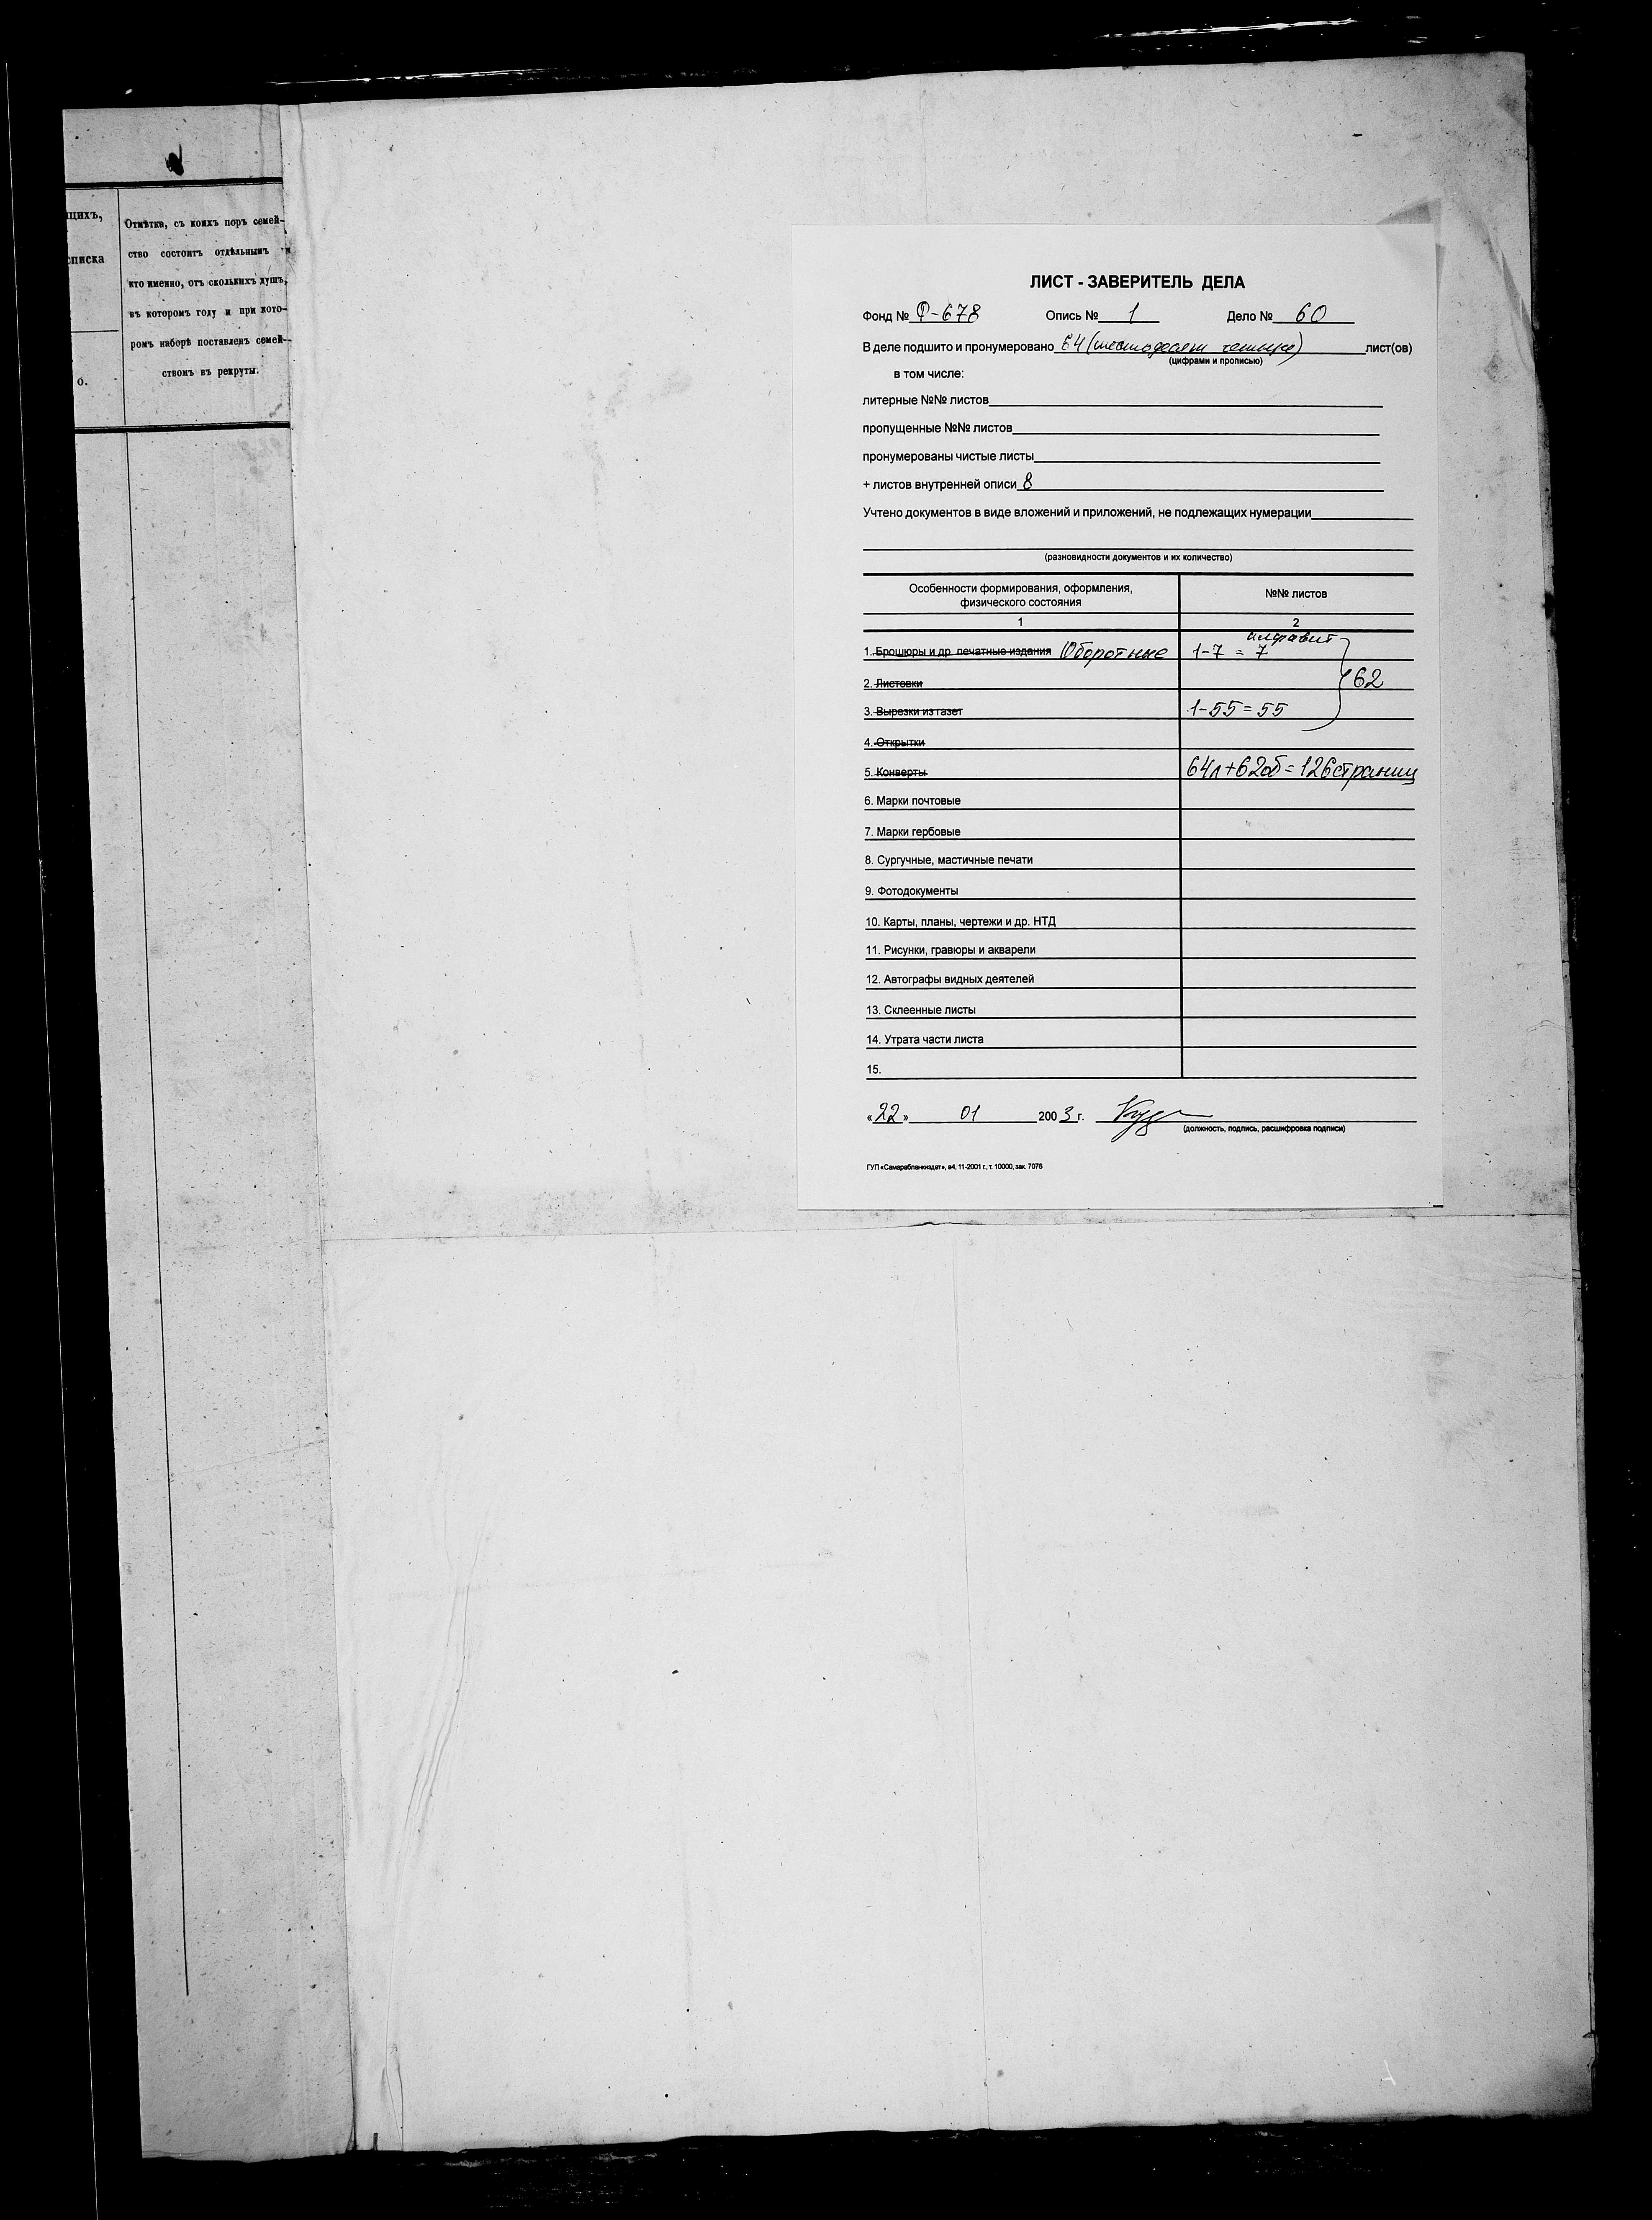 щихъ,
списка
о.
Отмѣтка, съ коихъ поръ семей-
ство состоитъ отдѣльнымъ и
кто именно, отъ сколькихъ душъ,
въ которомъ году и при кото-
ромъ наборѣ поставленъ семей-
ствомъ въ рекруты.
ЛИСТ - ЗАВЕРИТЕЛЬ ДЕЛА
Фонд № Ф-678 Опись № 1 Дело № 60
В деле подшито и пронумеровано 64 (шестьдесят четыре) лист(ов)
(цифрами и прописью)
в том числе:
литерные №№ листов
пропущенные №№ листов
пронумерованы чистые листы
+ листов внутренней описи 8
Учтено документов в виде вложений и приложений, не подлежащих нумерации
(разновидности документов и их количество)
Особенности формирования, оформления, №№ листов
физического состояния
1 2
алфавит
1. Брошюры и др. печатные издания Оборотные 1-7 = 7
2. Листовки 62
3. Вырезки из газет 1-55 = 55
4. Открытки
5. Конверты 64л+62об=126страниц
6. Марки почтовые
7. Марки гербовые
8. Сургучные, мастичные печати
9. Фотодокументы
10. Карты, планы, чертежи и др. НТД
11. Рисунки, гравюры и акварели
12. Автографы видных деятелей
13. Склеенные листы
14. Утрата части листа
15.
«22» 01 2003 г.
(должность, подпись, расшифровка подписи)
ГУП «Самарабланкиздат», а4, 11-2001 г., т. 10000, зак. 7076